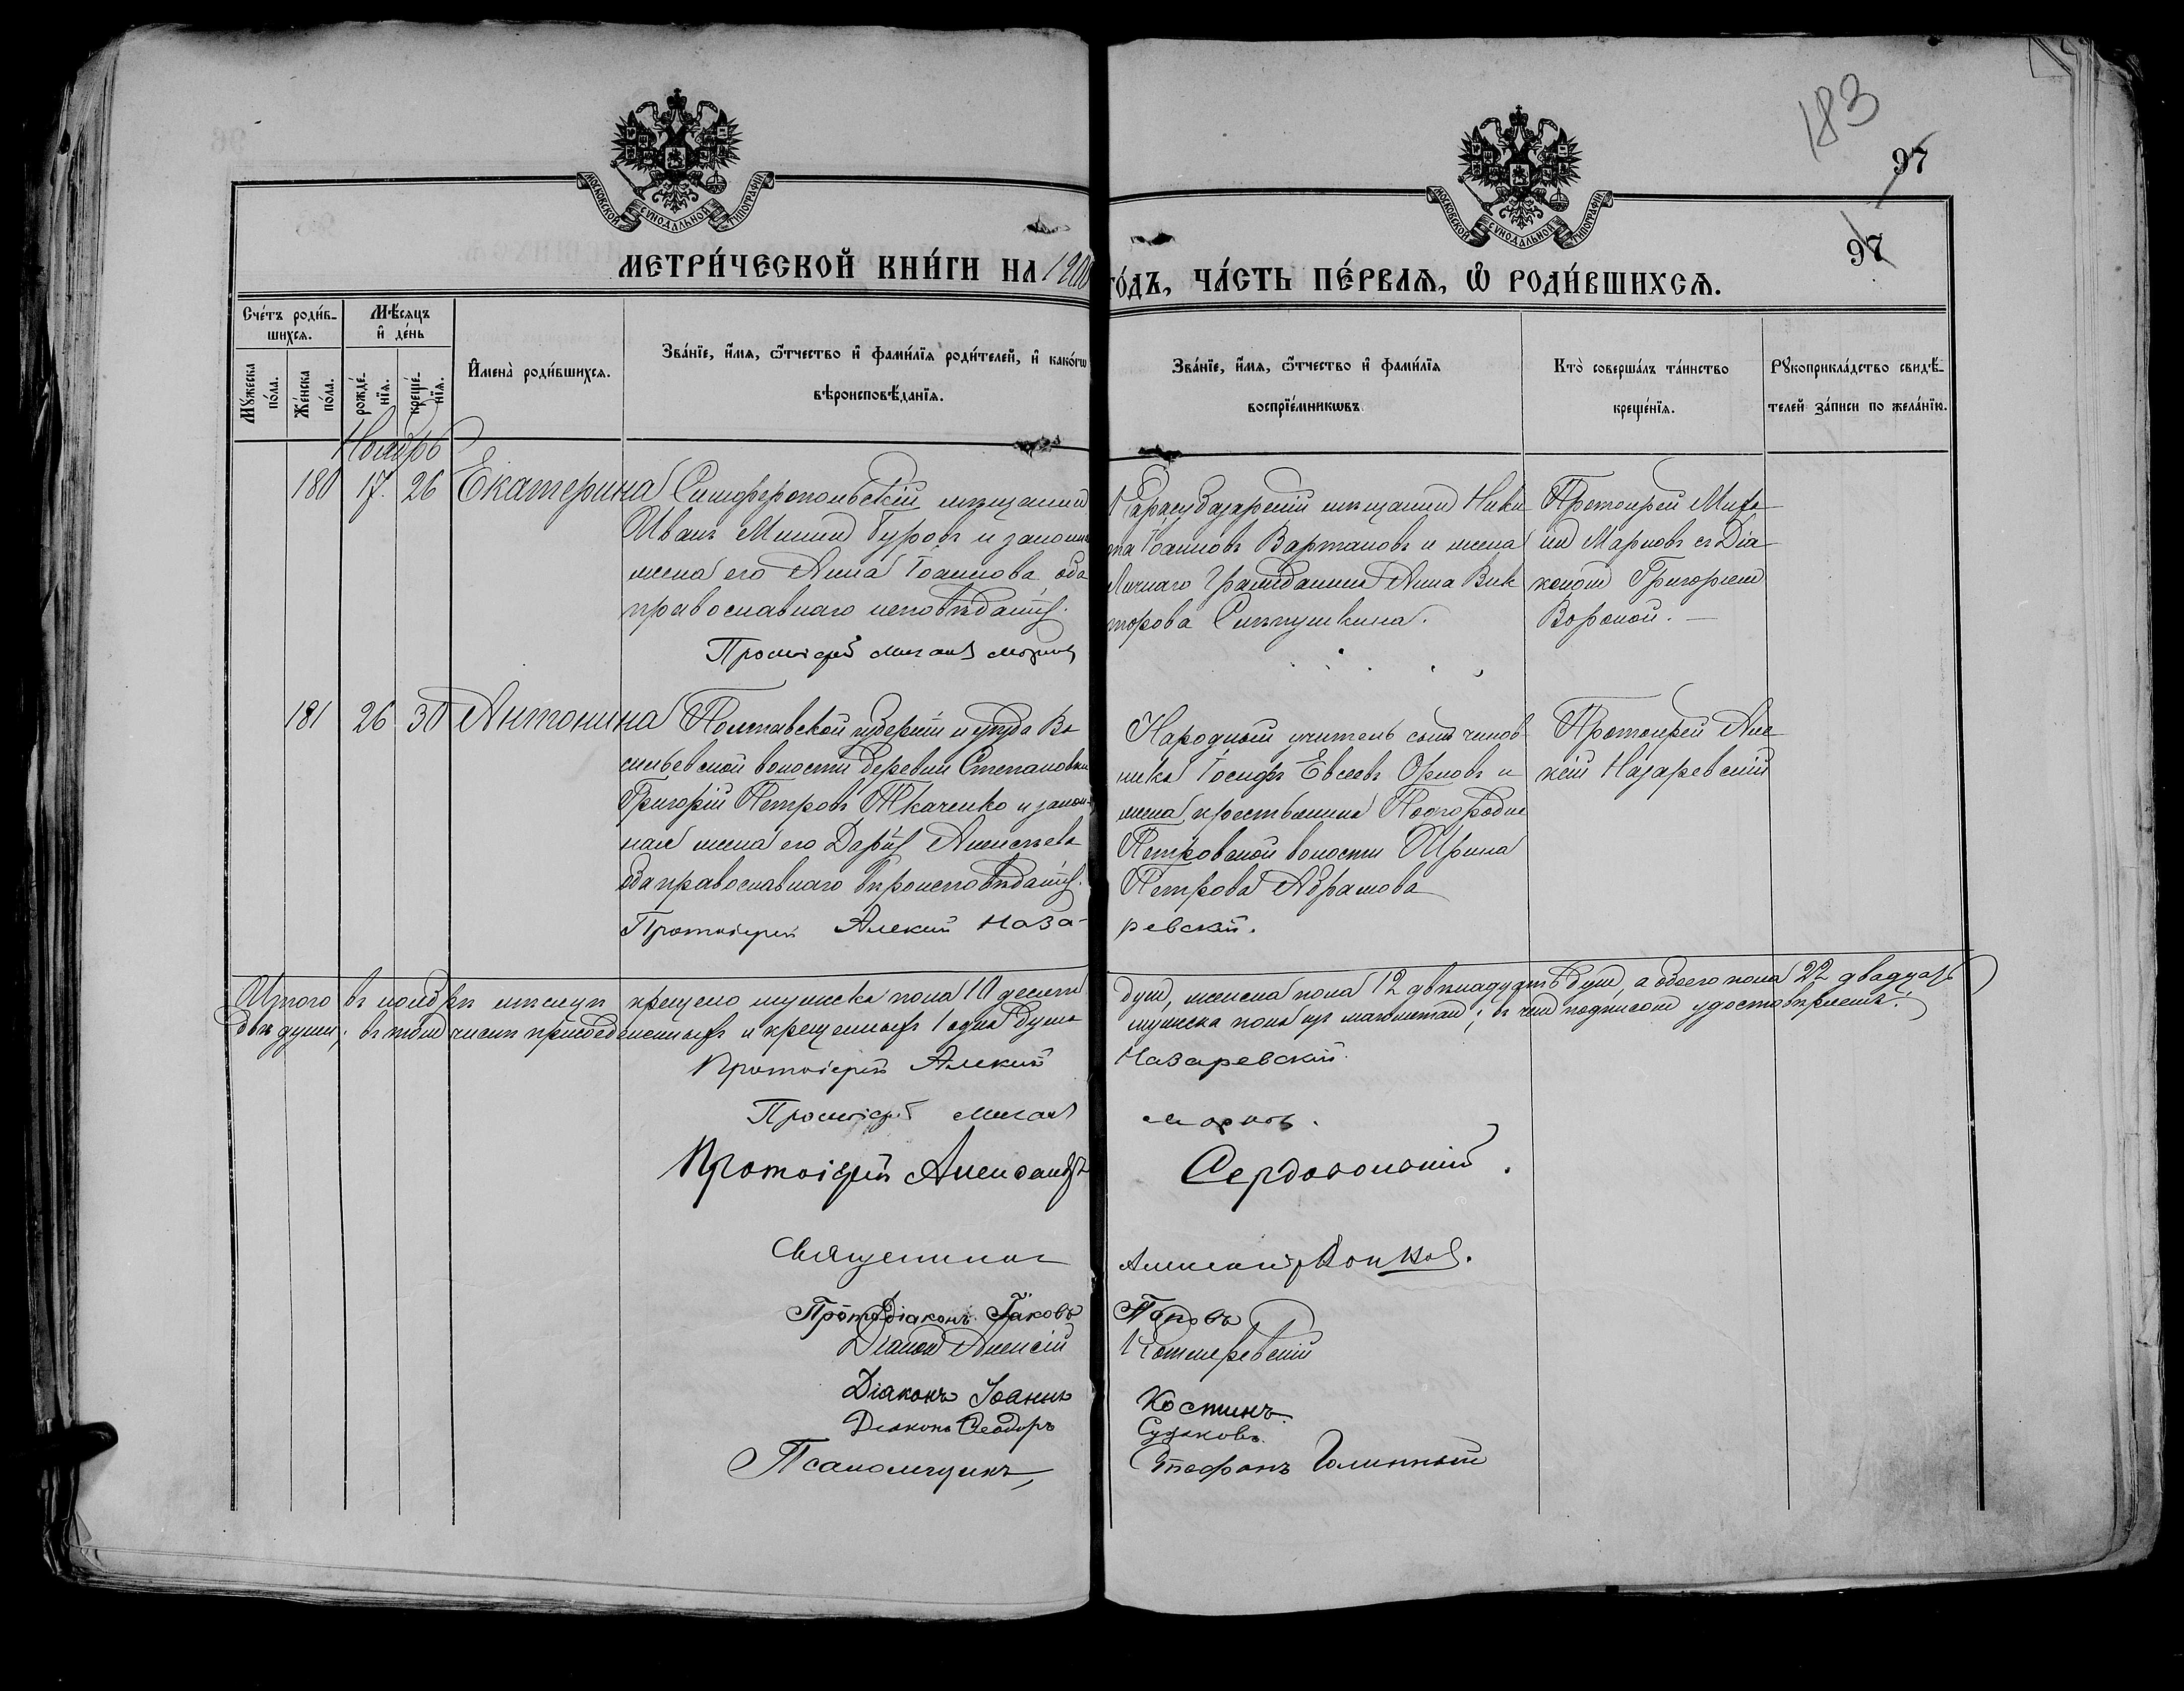 183
97
97
МОСКОВСКОЙ СѴНОДАЛЬНОЙ ТИПОГРАФІИ
МОСКОВСКОЙ СѴНОДАЛЬНОЙ ТИПОГРАФІИ
МЕТРИ́ЧЕСКОЙ КНИ́ГИ НА 1900
ГО́ДЪ, ЧА́СТЬ ПЕ́РВАѦ, Ѽ РОДИ́ВШИХСѦ.
Сче́тъ роди́в-
шихсѧ.
Мꙋ́жеска по́ла.
Же́нска по́ла.
Мѣ́сѧцъ и҆ де́нь
рожде́-нїѧ.
креще́-нїѧ.
И҆мена̀ роди́вшихсѧ.
Зва́нїе, и҆́мѧ, ѻ҆́тчество и҆ фами́лїѧ роди́телей, и҆ како́гѡ
вѣроисповѣ́данїѧ.
Зва́нїе, и҆́мѧ, ѻ҆́тчество и҆ фами́лїѧ
воспрїе́мникѡвъ.
Кто̀ соверша́лъ та́инство
креще́нїѧ.
Рꙋкоприкла́дство свидѣ́-
телей за́писи по жела́нїю.
Ноябрь
180 17. 26 Екатерина
Симферопольскій мѣщанин
Иванъ Минин Гуровъ и законн
жена его Анна Іоаннова, оба
православнаго исповѣданія.
Протоіерей Михаил Марков
Карасубазарскій мѣщанин Ники
та Іоаннов Вартановъ и жена
Личнаго Гражданина Анна Вик
торова Слѣпушкина.
Протоіерей Миха
ил Марковъ съ Діа
коном Григоріем
Вороной.
181 26 30 Антонина
Полтавской губерніи и уѣзда Ва
сильевской волости деревни Степановки
Григорій Петровъ Ткаченко и закон-
ная жена его Дарія Алексѣева
оба православнаго вѣроисповѣданія.
Протоіерей Алексій Наза-
ревскій.
Народный учитель сынъ чинов
ника Іосифъ Евсеевъ Орловъ и
жена крестьянина Подгородне
Петровской волости Ирина
Петрова Абрамова
Протоіерей Але
ксій Назаревскій
Итого въ ноябрѣ мѣсяцѣ крещено мужска пола 10 десять
душ, женска пола 12 двѣнадцать душ, а обоего пола 22 двадцать
двѣ души; въ том числѣ присоединенныхъ и крещенныхъ 1 одна душа
мужска пола из магометан; въ чем подписом удостовѣряемъ:
Протоіерей Алексій Назаревскій.
Протоіерей Михаил Марковъ.
Протоіерей Александръ Сердобольскій.
Священникъ
Протодіаконъ Іаковъ Поповъ
Діакон Алексій
Діаконъ Іоаннъ Костинъ
Діаконъ Ѳеодоръ
Псаломщикъ, Стефанъ